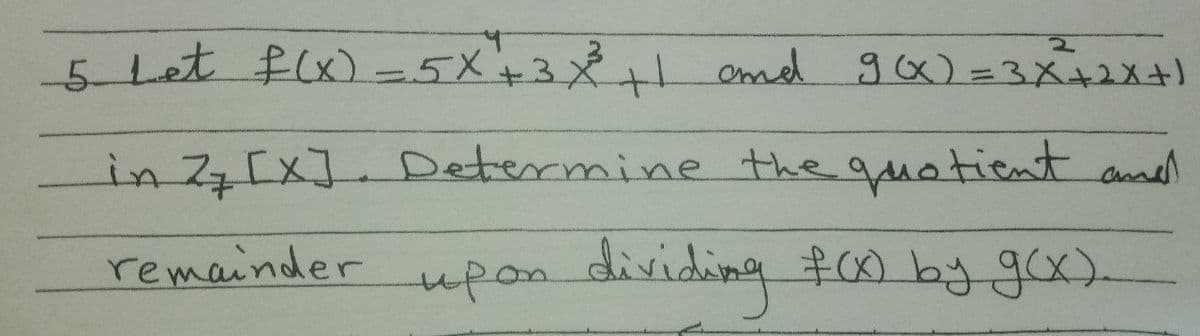 5 Let f(x) = 5x⁴+3x³+1 and g(x) = 3x²+2x+1
in Z₇[x]. Determine the quotient and
remainder upon dividing f(x) by g(x).